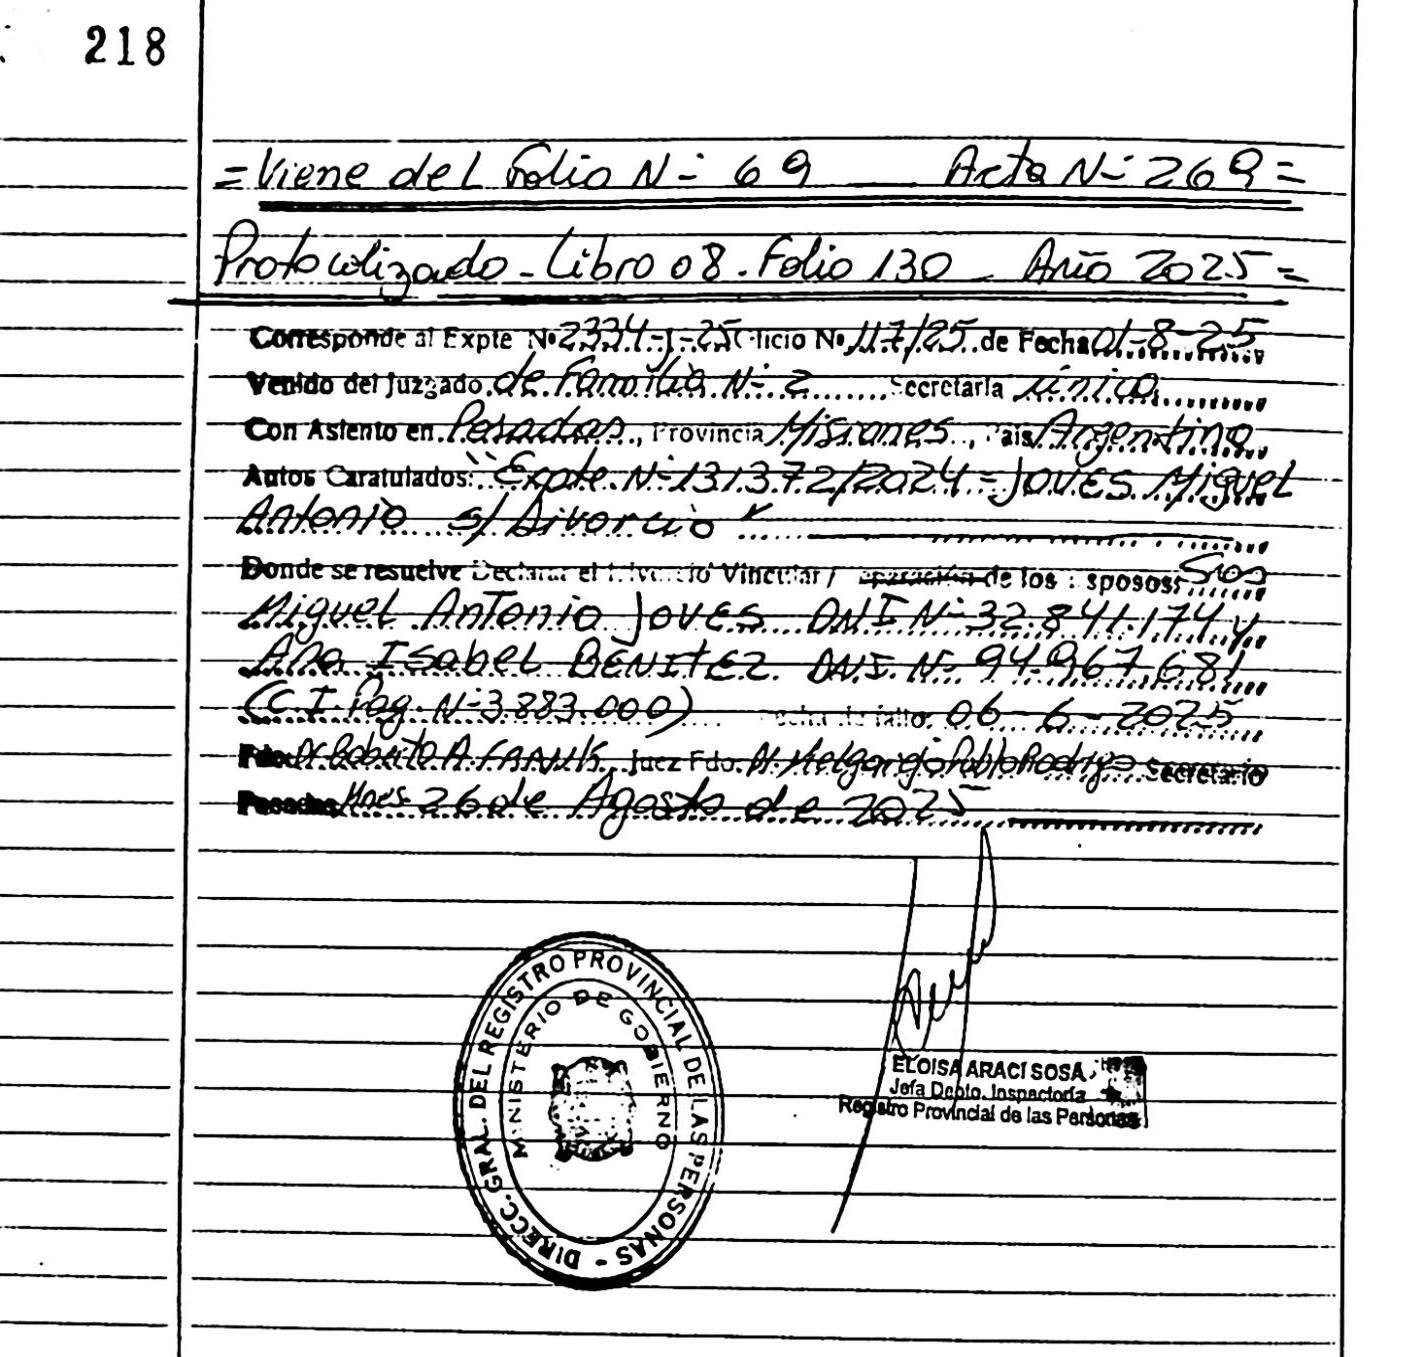 218
= Viene del Folio N- 69 — Acta N- 269 =
Protocolizado - Libro 08 - Folio 130 - Año 2025 =
Corresponde al Expte Nº 2334-J-25 Oficio Nº 117/25 de Fecha 01-8-25
Venido del Juzgado de Familia N- 2 Secretaría única
Con Asiento en Posadas, Provincia Misiones, País Argentina
Autos Caratulados: "Expte. N- 131372/2024 - JOVES Miguel
Antonio s/ Divorcio"
Donde se resuelve Declarar el Divorcio Vincular / separación de los Esposos: Sres
Miguel Antonio JOVES DNI N- 32.841.174 y
Ana Isabel BENITEZ DNI. N- 94.967.681
(C.I. Pag. N- 3.883.000) Fecha de fallo: 06-6-2025
Fdo: Dr Roberto A. Juez Fdo. Dr Pablo Rodrigo Secretario
Posadas, Mnes. 26 de Agosto de 2025
DIRECC. GRAL. DEL REGISTRO PROVINCIAL DE LAS PERSONAS -
MINISTERIO DE GOBIERNO
ELOISA ARACI SOSA
Jefa Depto. Inspectoría
Registro Provincial de las Personas